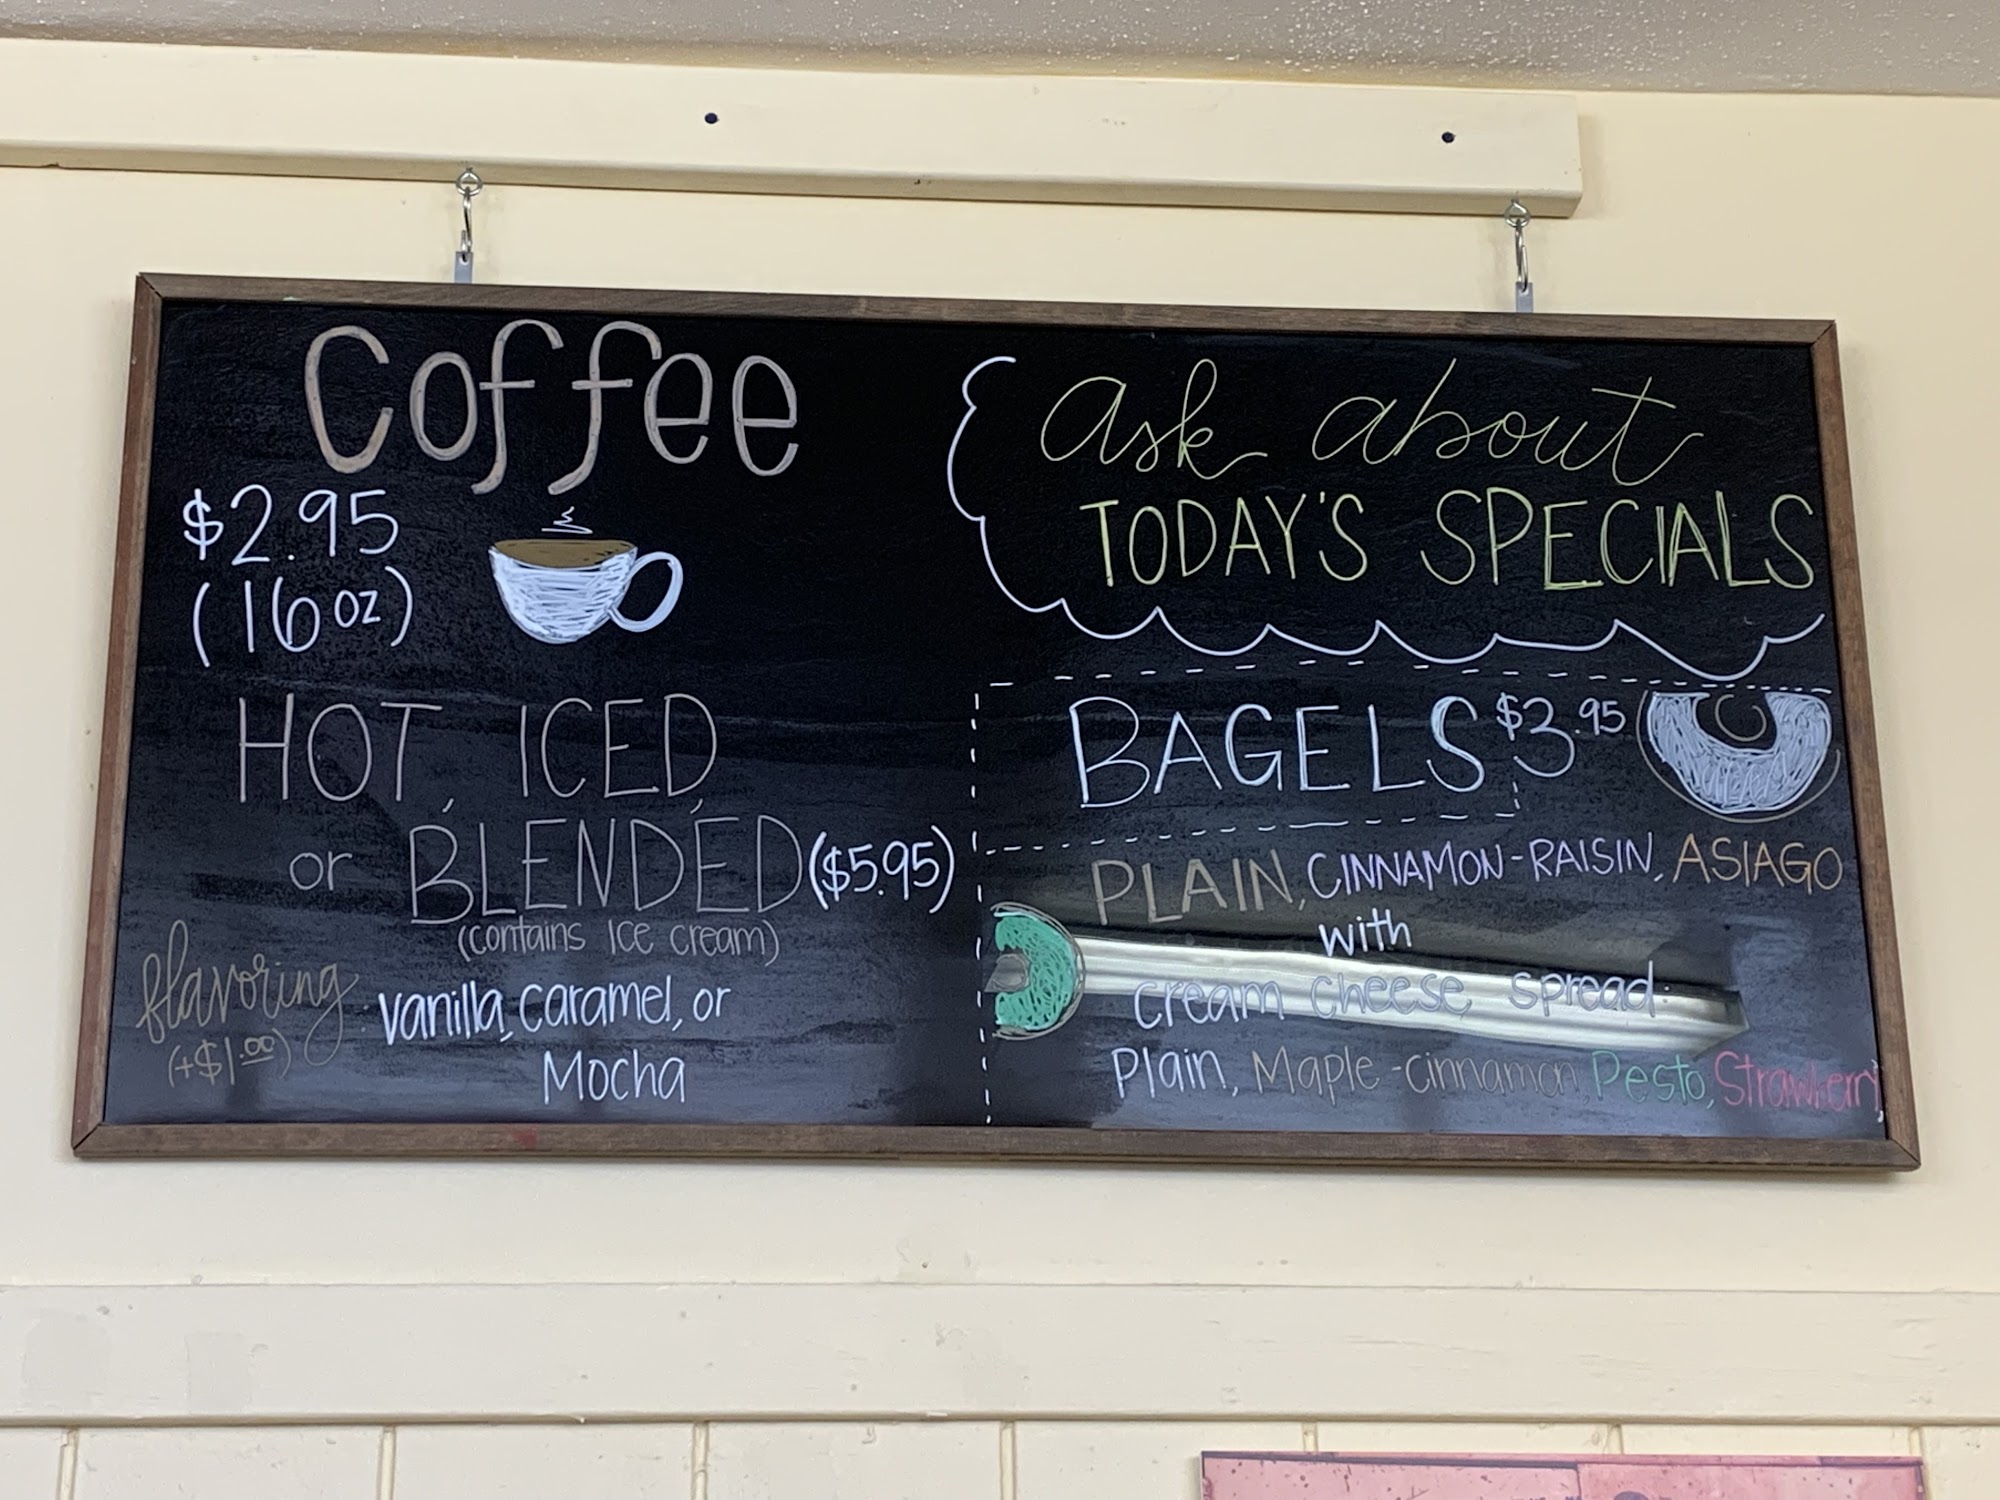 Coffee
$2.95
(16oz)
HOT, ICED,
or BLENDED ($5.95)
(contains Ice cream)
flavoring: vanilla, caramel, or
(+$1.00) Mocha
Ask about
TODAY'S SPECIALS
BAGELS $3.95
PLAIN, CINNAMON-RAISIN, ASIAGO
with
cream cheese spread:
Plain, Maple-cinnamon, Pesto, Strawberry